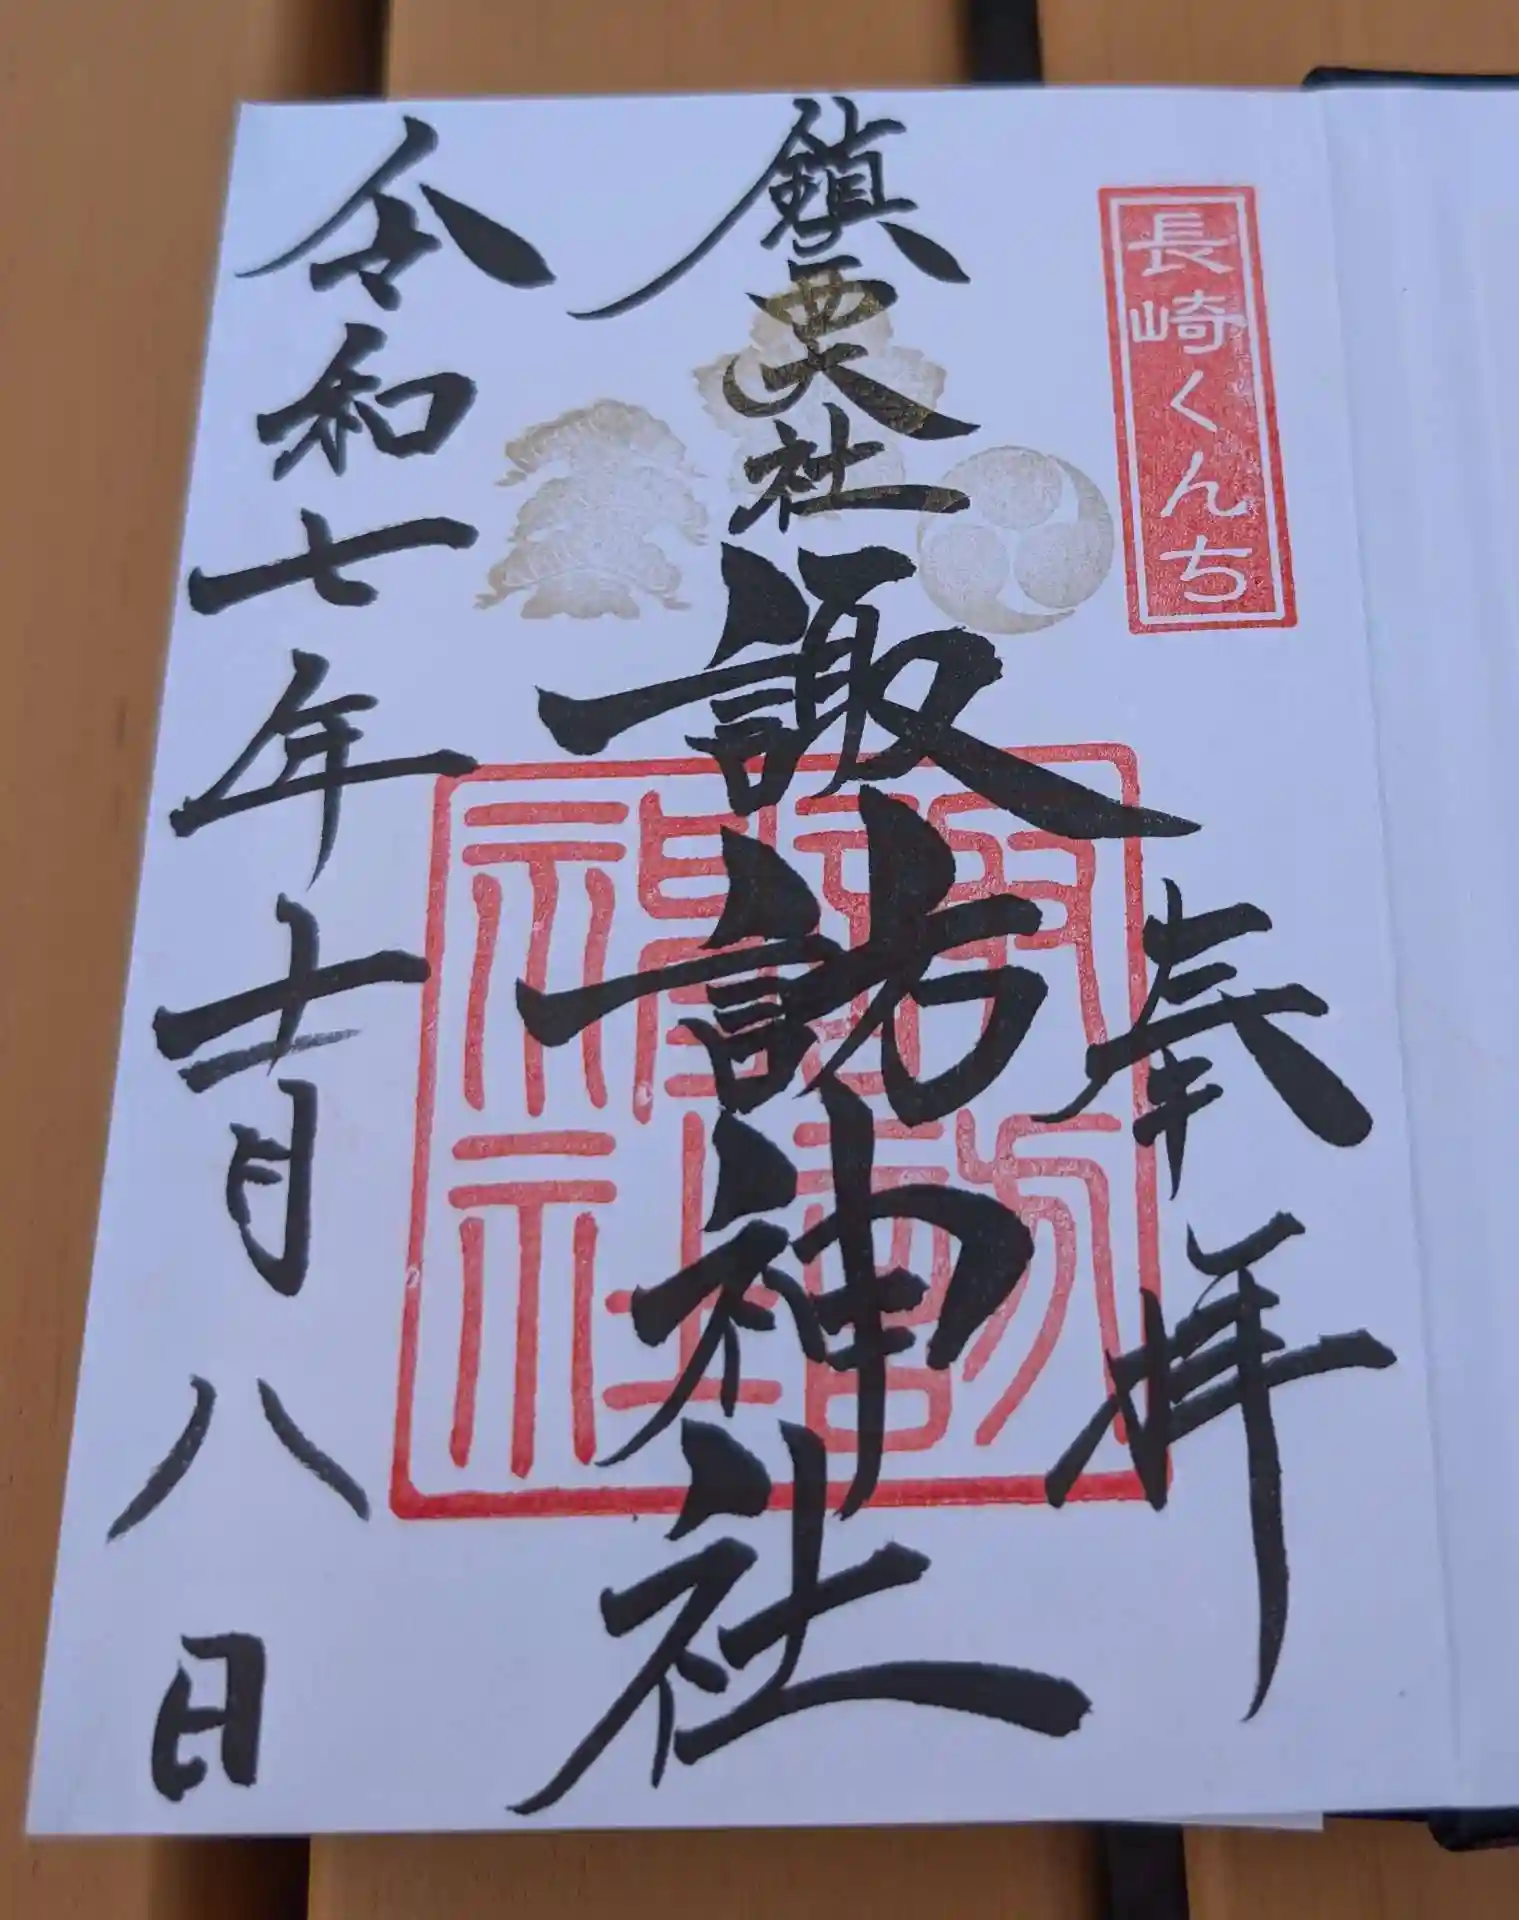 長崎くんち
奉拝
鎮西大社 諏訪神社
諏訪神社
令和七年十月八日